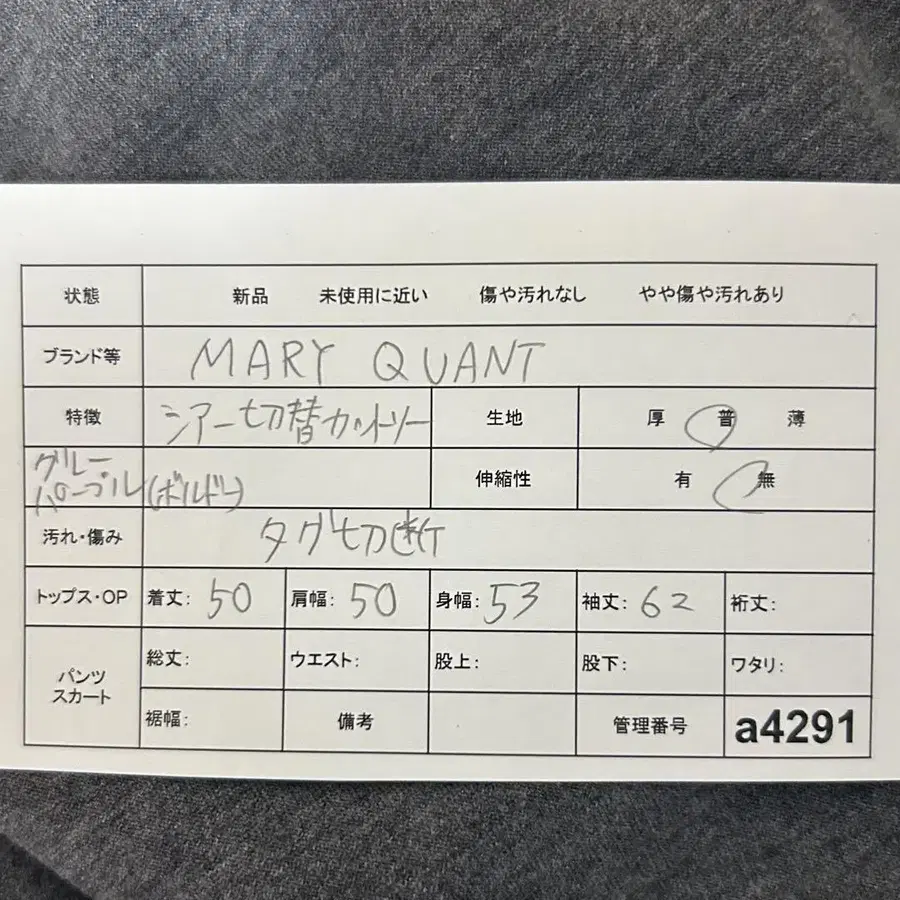 状態 新品 未使用に近い 傷や汚れなし やや傷や汚れあり
ブランド等 MARY QUANT
特徴 シアー切替カットソー 生地 厚 普 薄
グレー
パープル(ボルドー) 伸縮性 有 無
汚れ・傷み タグ切断
トップス・OP 着丈: 50 肩幅: 50 身幅: 53 袖丈: 62 裄丈:
パンツ
スカート
総丈: ウエスト: 股上: 股下: ワタリ:
裾幅: 備考 管理番号 a4291